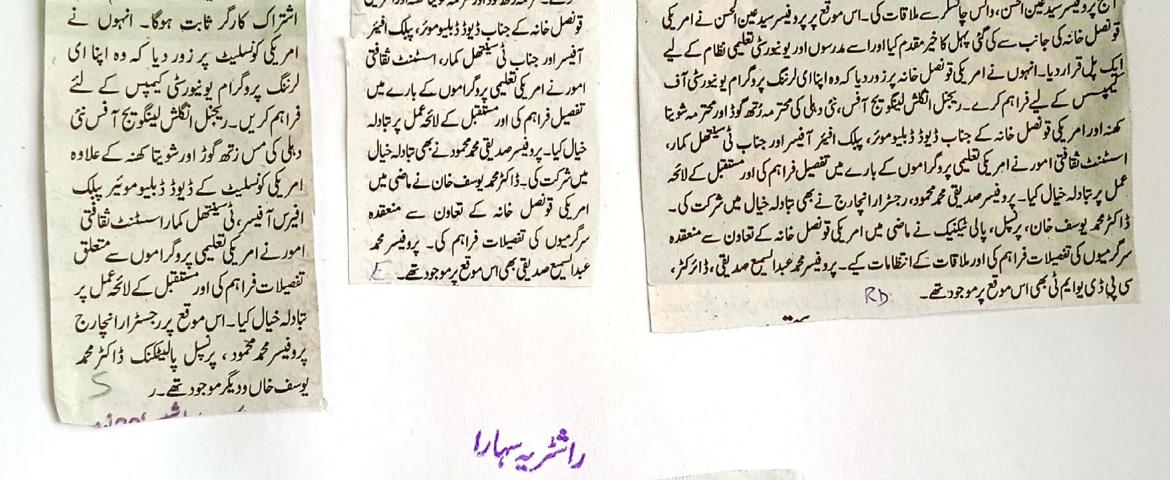 آج پروفیسر سید عین الحسن، وائس چانسلر سے ملاقات کی۔ اس موقع پر پروفیسر سید عین الحسن نے امریکی
قونصل خانہ کی جانب سے کی گئی پہل کا خیر مقدم کیا اور اسے مدرسوں اور یونیورسٹی تعلیمی نظام کے لیے
ایک پل قرار دیا۔ انہوں نے امریکی قونصل خانہ پر زور دیا کہ وہ اپنا ای لرننگ پروگرام یونیورسٹی آف
کیمپس کے لیے فراہم کرے۔ ریجنل انگلش لینگویج آفس، نئی دہلی کی محترمہ رُتھ گوڈ اور محترمہ شویتا
کھنہ اور امریکی قونصل خانہ کے جناب ڈیوڈ ڈبلیو موئر، پبلک افیئر آفیسر اور جناب ٹی سینتھل کمار،
اسسٹنٹ ثقافتی امور نے امریکی تعلیمی پروگراموں کے بارے میں تفصیل فراہم کی اور مستقبل کے لائحہ
عمل پر تبادلہ خیال کیا۔ پروفیسر صدیقی محمد محمود، رجسٹرار انچارج نے بھی تبادلہ خیال میں شرکت کی۔
ڈاکٹر محمد یوسف خان، پرنسپل، پالی ٹیکنیک نے ماضی میں امریکی قونصل خانہ کے تعاون سے منعقدہ
سرگرمیوں کی تفصیلات فراہم کی اور ملاقات کے انتظامات کیے۔ پروفیسر محمد عبدالسمیع صدیقی، ڈائرکٹر،
سی پی ڈی یو ایم ٹی بھی اس موقع پر موجود تھے۔
Rd
قونصل خانہ کے جناب ڈیوڈ ڈبلیو موئر، پبلک افیئر
آفیسر اور جناب ٹی سینتھل کمار، اسسٹنٹ ثقافتی
امور نے امریکی تعلیمی پروگراموں کے بارے میں
تفصیل فراہم کی اور مستقبل کے لائحہ عمل پر تبادلہ
خیال کیا۔ پروفیسر صدیقی محمد محمود نے بھی تبادلہ خیال
میں شرکت کی۔ ڈاکٹر محمد یوسف خان نے ماضی میں
امریکی قونصل خانہ کے تعاون سے منعقدہ
سرگرمیوں کی تفصیلات فراہم کی۔ پروفیسر محمد
عبدالسمیع صدیقی بھی اس موقع پر موجود تھے۔
E
اشتراک کارگر ثابت ہوگا۔ انہوں نے
امریکی کونسلیٹ پر زور دیا کہ وہ اپنا ای
لرننگ پروگرام یونیورسٹی کیمپس کے لئے
فراہم کریں۔ ریجنل انگلش لینگویج آفس نئی
دہلی کی مس رتھ گوڑ اور شویتا کھنہ کے علاوہ
امریکی کونسلیٹ کے ڈیوڈ ڈبلیو موئیر پبلک
افیرس آفیسر، ٹی سینتھل کمار اسسٹنٹ ثقافتی
امور نے امریکی تعلیمی پروگراموں سے متعلق
تفصیلات فراہم کی اور مستقبل کے لائحہ عمل پر
تبادلہ خیال کیا۔ اس موقع پر رجسٹرار انچارج
پروفیسر محمد محمود، پرنسپل پالیٹکنک ڈاکٹر محمد
یوسف خاں و دیگر موجود تھے۔ ر
S
راشٹریہ سہارا